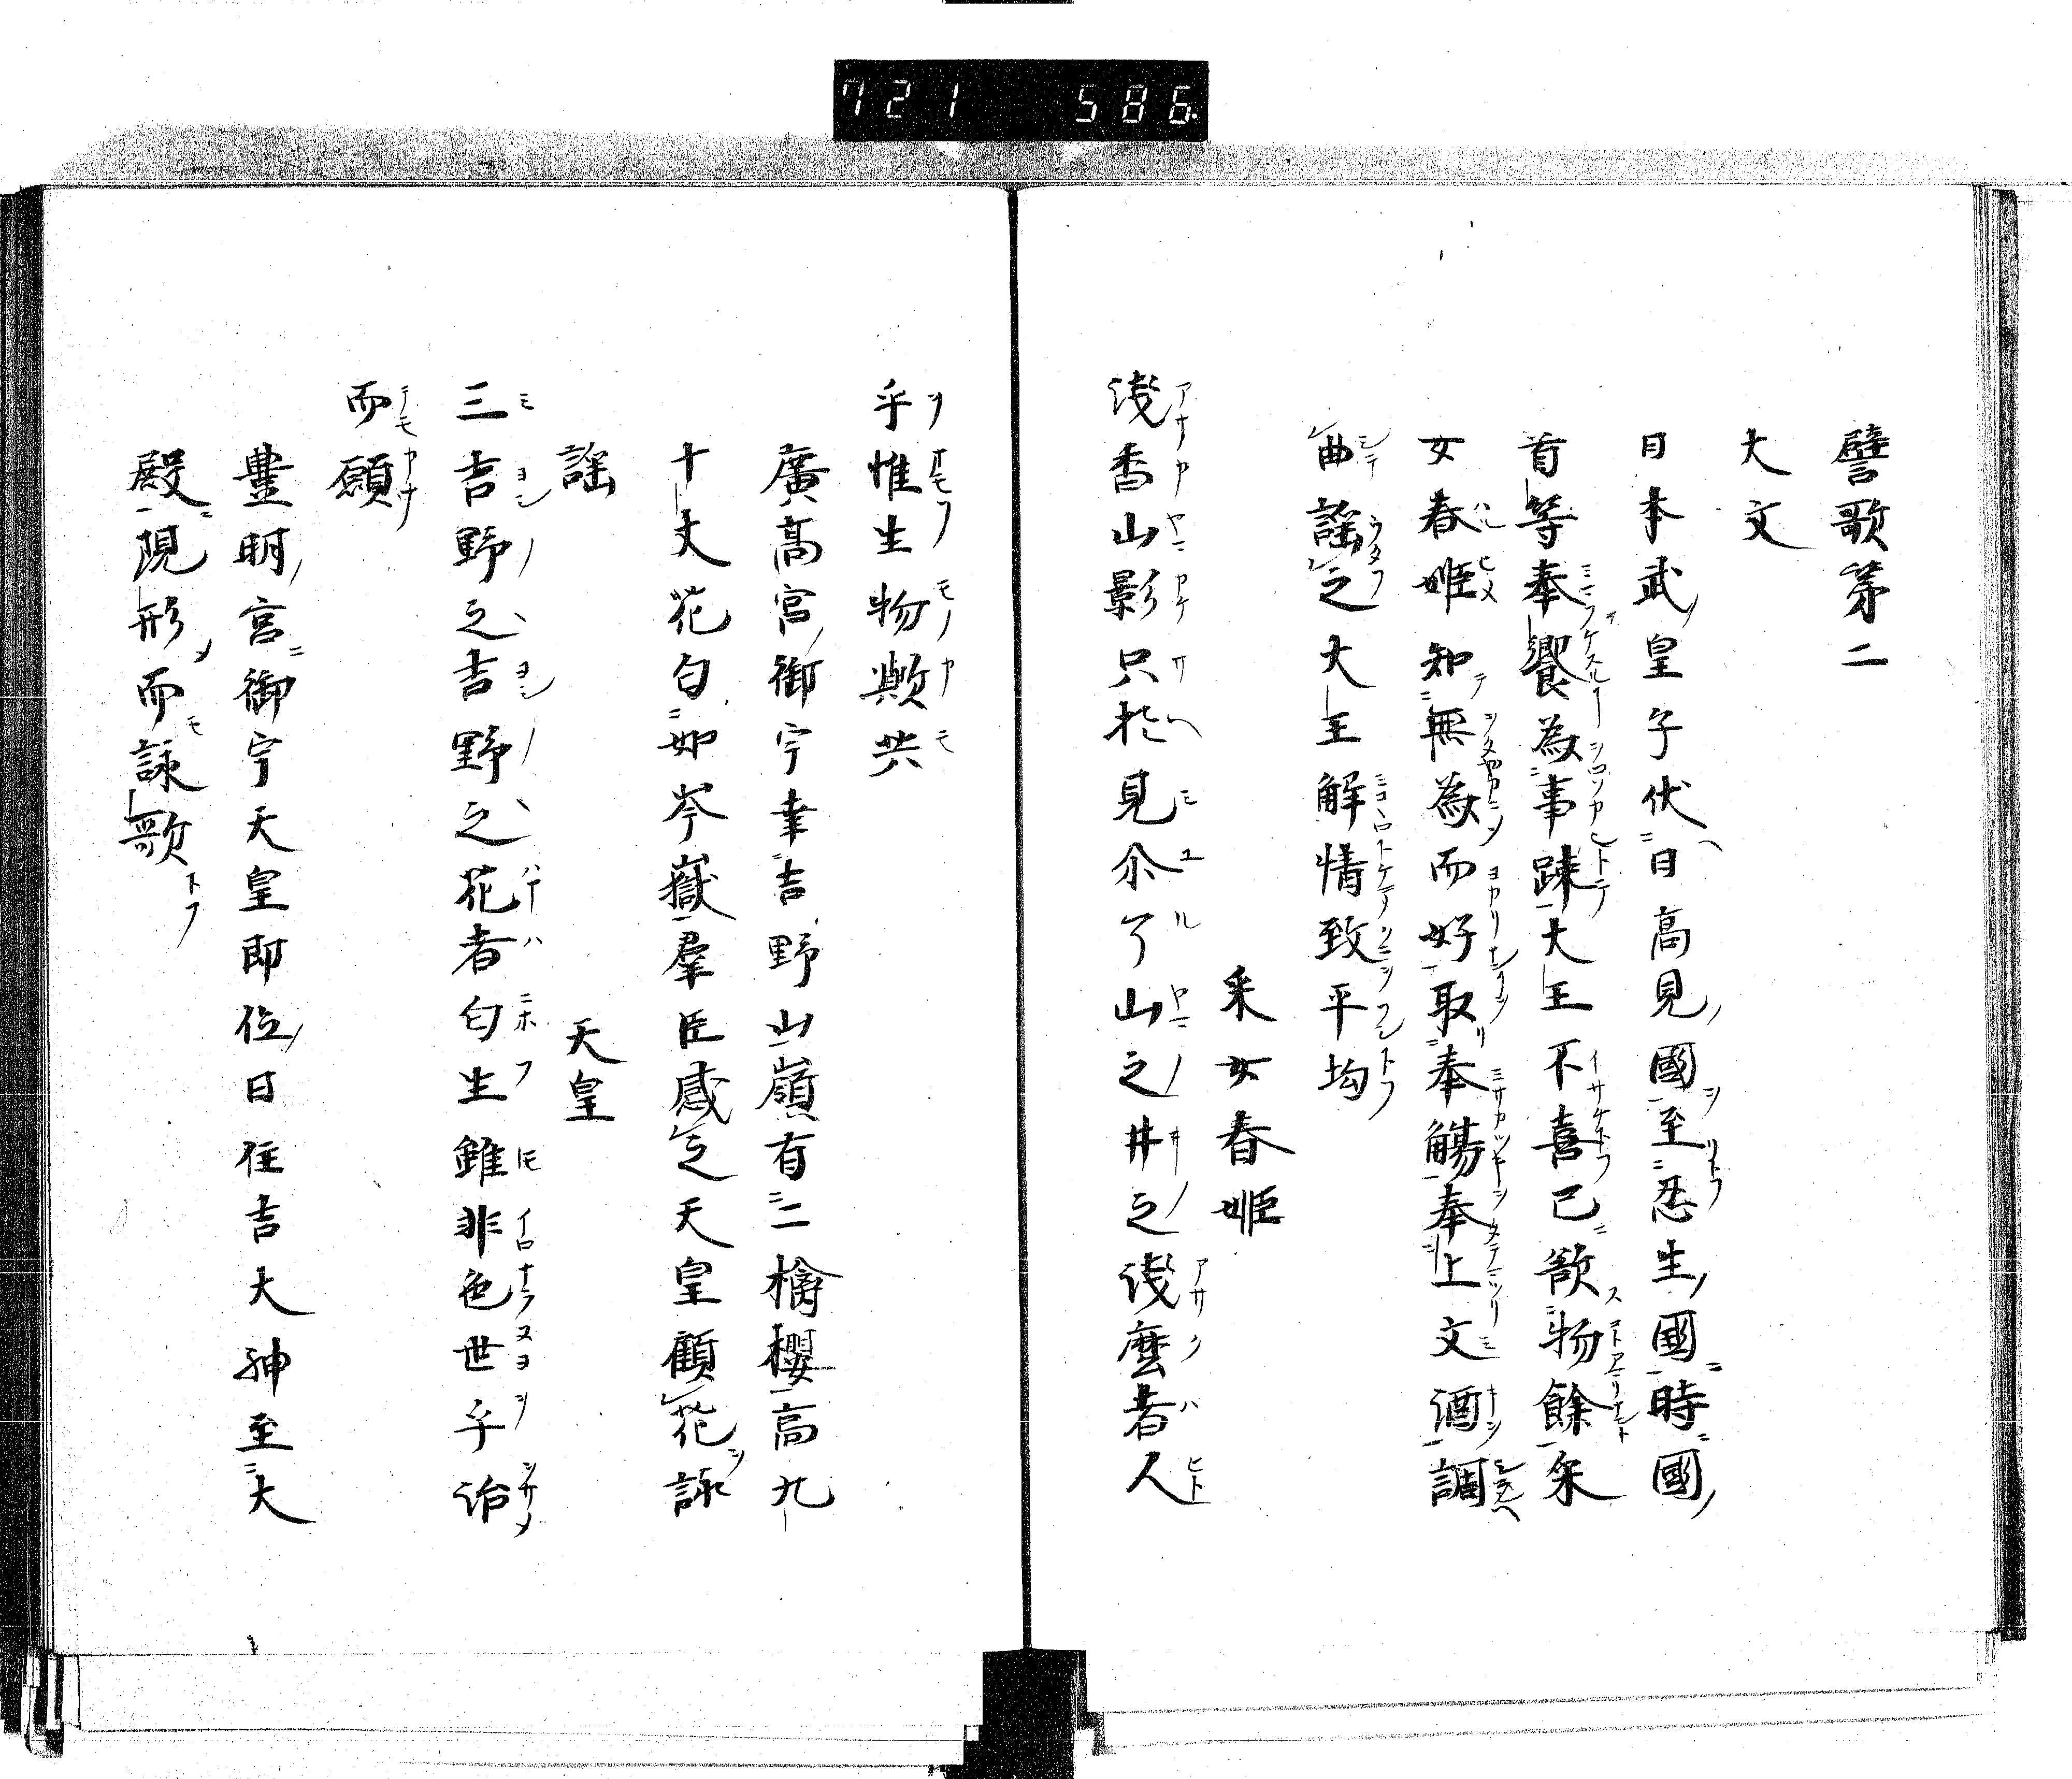 721 586
譬歌第二
大文
日本武皇子伏日高見國至忍生國時國
首等奉饗為事踈大王不喜已欲物餘采
女春姫知無為而好取奉觴奉上文酒調
曲謡之大王解情致平均
采女春姫
淺香山影只於見尒了山之井之淺麼者人
乎惟生物歟共
廣高宮御宇幸吉野山嶺有二櫥櫻高九
十丈花匂如岑嶽羣臣感之天皇顧花詠
謡
天皇
三吉野之吉野之花者匂生雖非色世乎治
而願
豊明宮御宇天皇即位日住吉大神至大
殿現形而詠歌